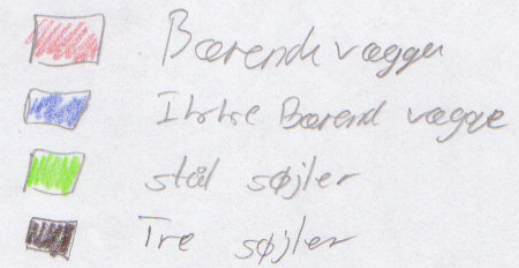 Bærende vægge
Ikke Bærend vægge
stål søjler
Tre søjler